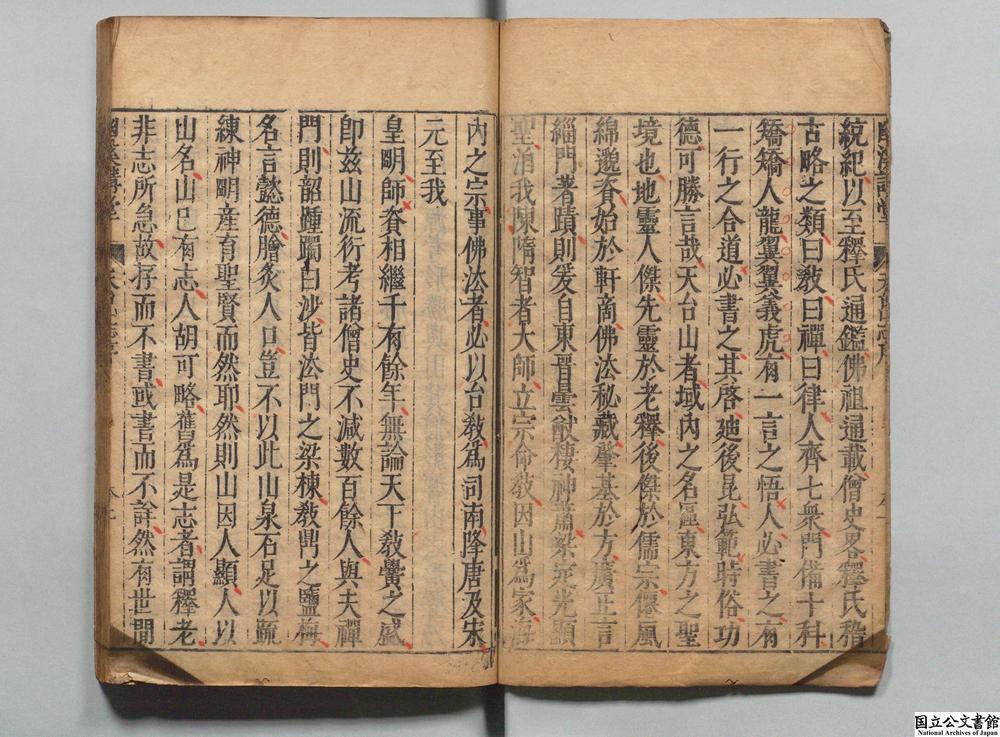 統紀以至釋氏通鑑佛祖通載僧史畧釋氏稽
古略之類曰敎曰禪曰律人齊七衆門備十科
矯矯人龍翼翼義虎有一言之悟人必書之有
一行之合道必書之其啓廸後昆弘範時俗功
德可勝言哉天台山者域内之名區東方之聖
境也地靈人傑先靈於老釋後傑於儒宗懷風
綿邈眷始於軒啇佛法秘藏肇基於方廣正言
緇門著蹟則爰自東晋曇猷棲神蕭梁定光顯
聖洎我陳隋智者大師立宗命敎因山爲家海
内之宗事佛法者必以台敎爲司南降唐及宋
元至我
皇明師資相繼千有餘年無論天下敎黌之盛
卽茲山流衍考諸僧史不減數百餘人與夫禪
門則韶踵躅曰沙皆法門之梁棟敎鼎之鹽梅
名言懿德膾炙人口豈不以此山泉石足以疏
練神明產育聖賢而然耶然則山因人顯人以
山名山已有志人胡可略舊爲是志者謂釋老
非志所急故存而不書或書而不詳然有世間
国立公文書館
National Archives of Japan